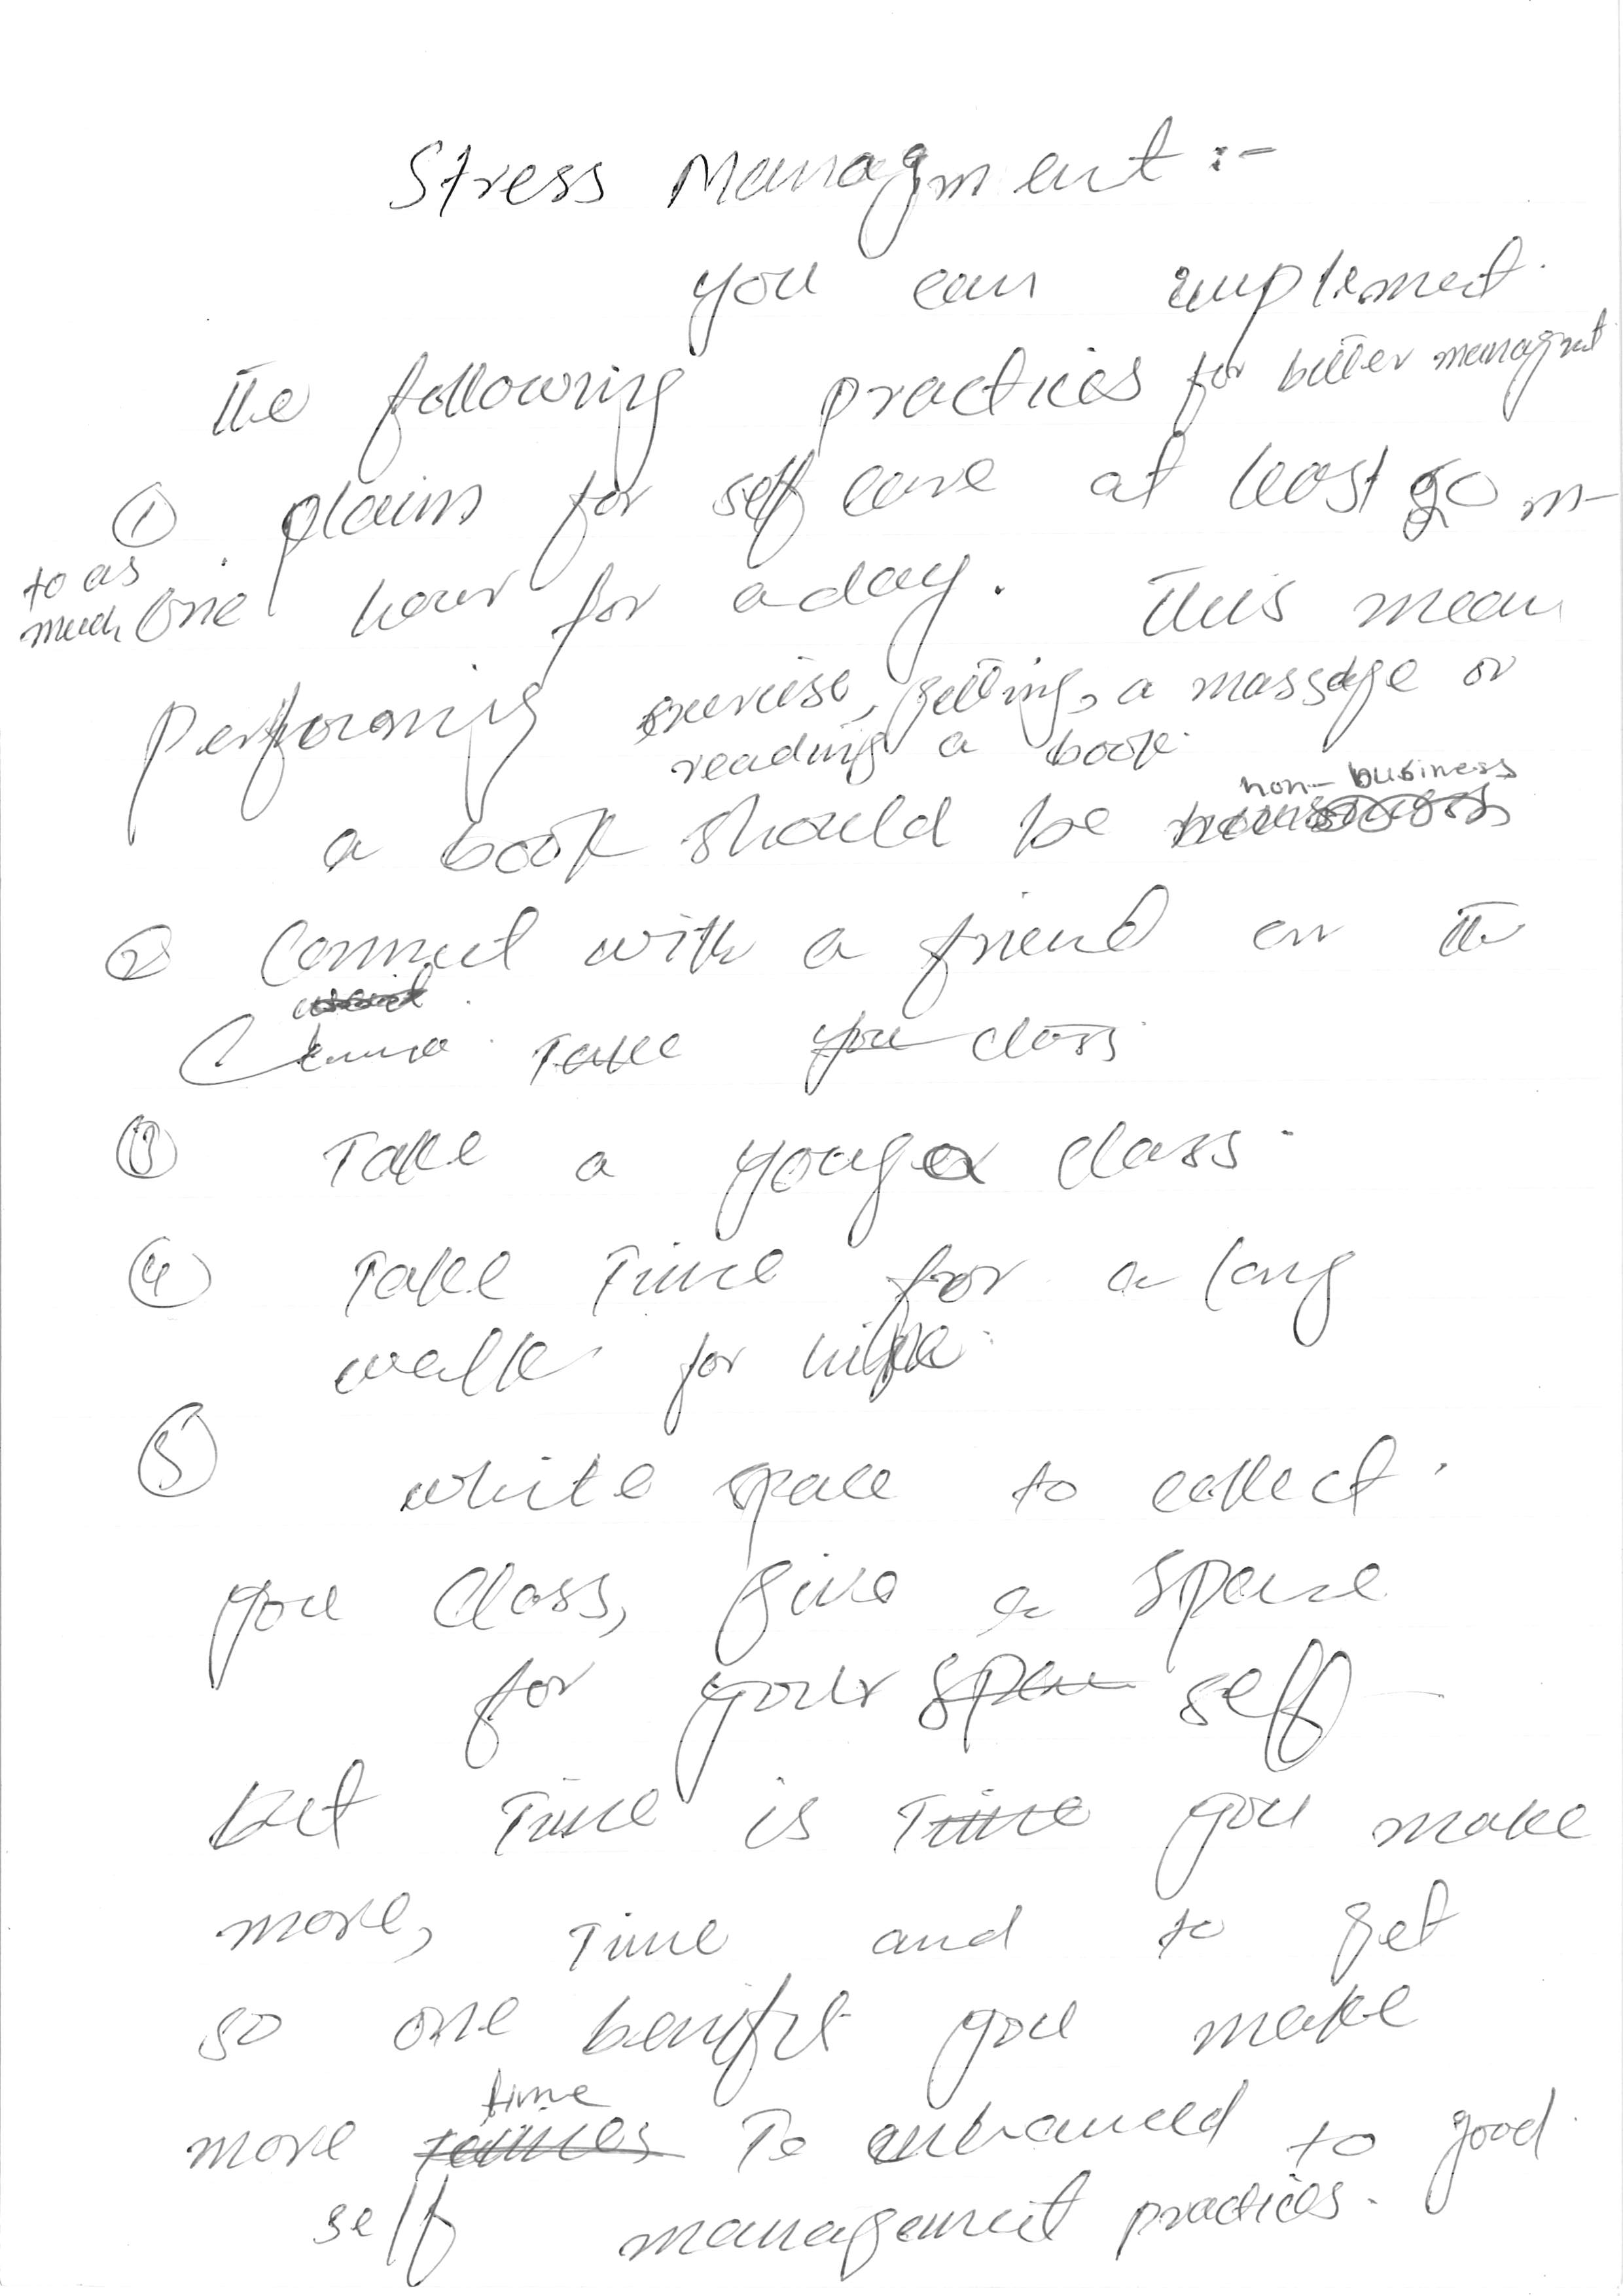 Stress Managment :-
you can implemet
The following practices for better managmt
① plains for self care at least 30 m-
to as
much one hour for a day. This mean
performing exercise, getting, a massage or
reading a book.
non-business
a book should be
② Connect with a friend on the
Take you class
③ Take a youga class.
④ Take Time for a long
walk for hike.
⑤ white space to collect.
you class, give a space
for your self -
but Time is Time you make
more, Time and to get
so one benifit you make
time
more To enhanced to good
self management practices.